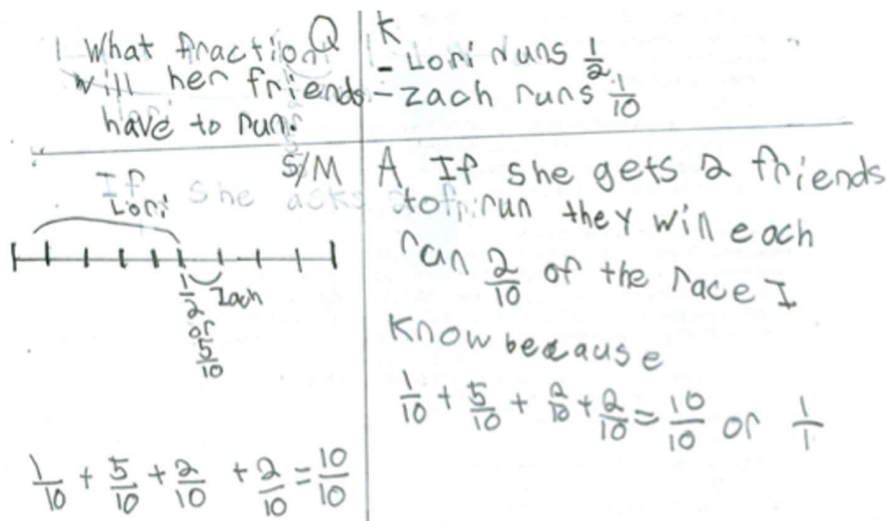 1 What fraction Q
will her friends
have to run?
K
- Lori runs 1/2
- Zach runs 1/10
S/M
If she asks
Lori
Zach
1/2
or
5/10
1/10 + 5/10 + 2/10 + 2/10 = 10/10
A If she gets 2 friends
to run they will each
run 2/10 of the race I
know because
1/10 + 5/10 + 2/10 + 2/10 = 10/10 or 1/1